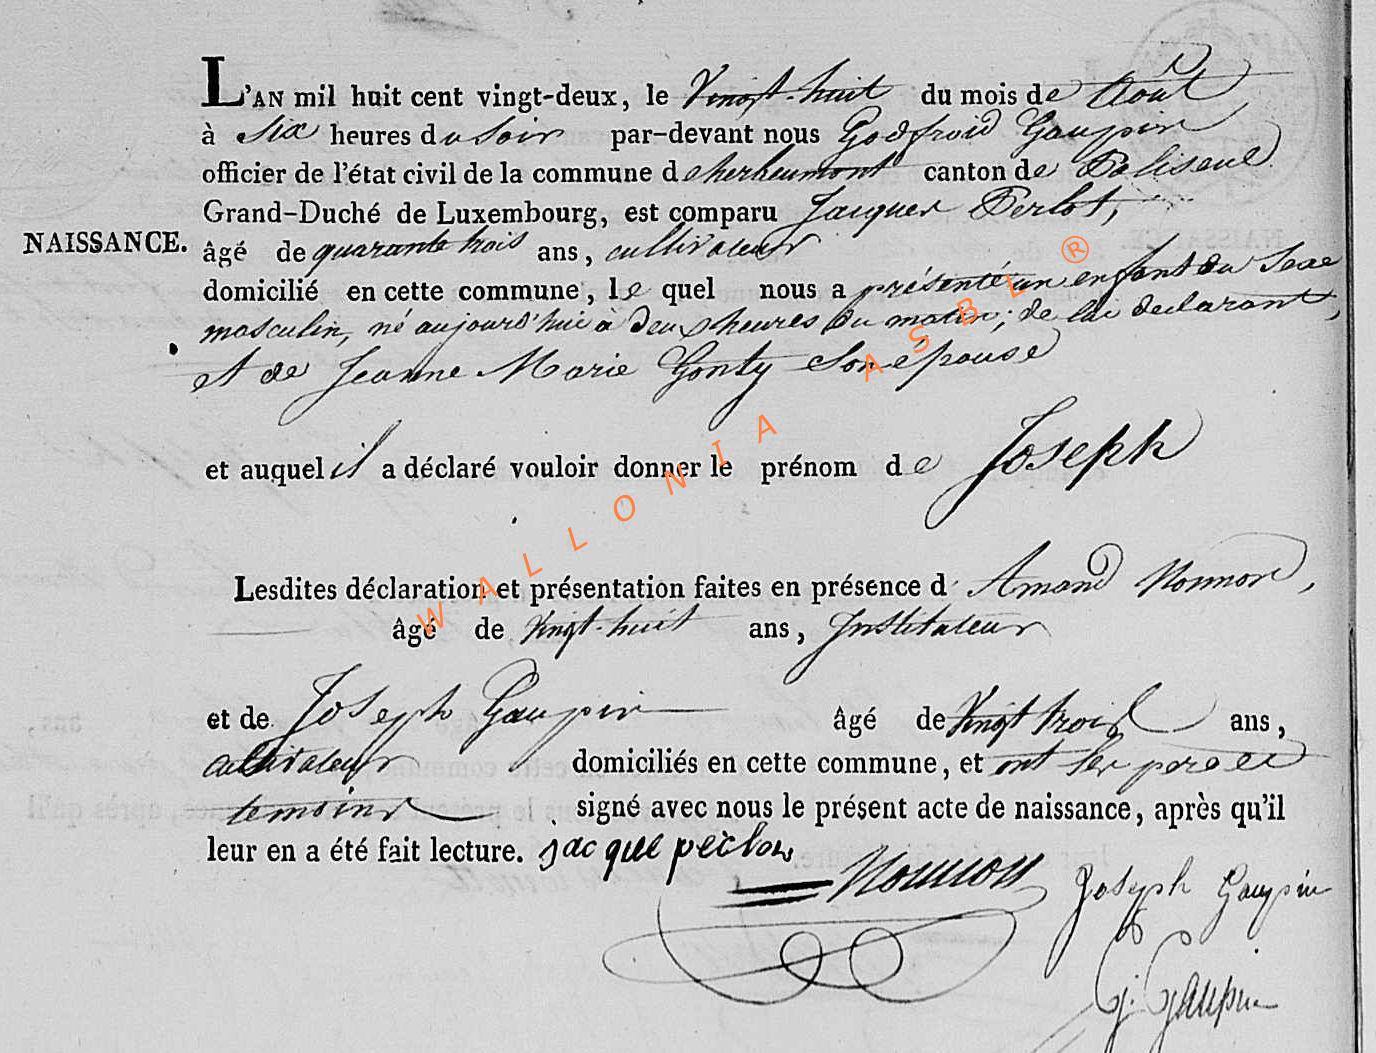 L'AN mil huit cent vingt-deux, le Vingt-huit du mois de Août
à six heures du soir par-devant nous Godfroid Gaupin
officier de l'état civil de la commune de herbeumont canton de Paliseul
Grand-Duché de Luxembourg, est comparu Jacques Perlot,
NAISSANCE. âgé de quarante trois ans, cultivateur
domicilié en cette commune, le quel nous a présenté un enfant du Sexe
masculin, né aujourd'hui à deux heures du matin; de lui declarant,
et de Jeanne Marie Gonty Son épouse
et auquel il a déclaré vouloir donner le prénom de Joseph
Lesdites déclaration et présentation faites en présence d' Amand
âgé de Vingt-huit ans, Instituteur
et de Joseph Gaupin âgé de Vingt trois ans,
cultivateur domiciliés en cette commune, et ont les pere et
temoins signé avec nous le présent acte de naissance, après qu'il
leur en a été fait lecture. jacque
Joseph Gaupin
G. Gaupin
WALLONIA ASBL ®